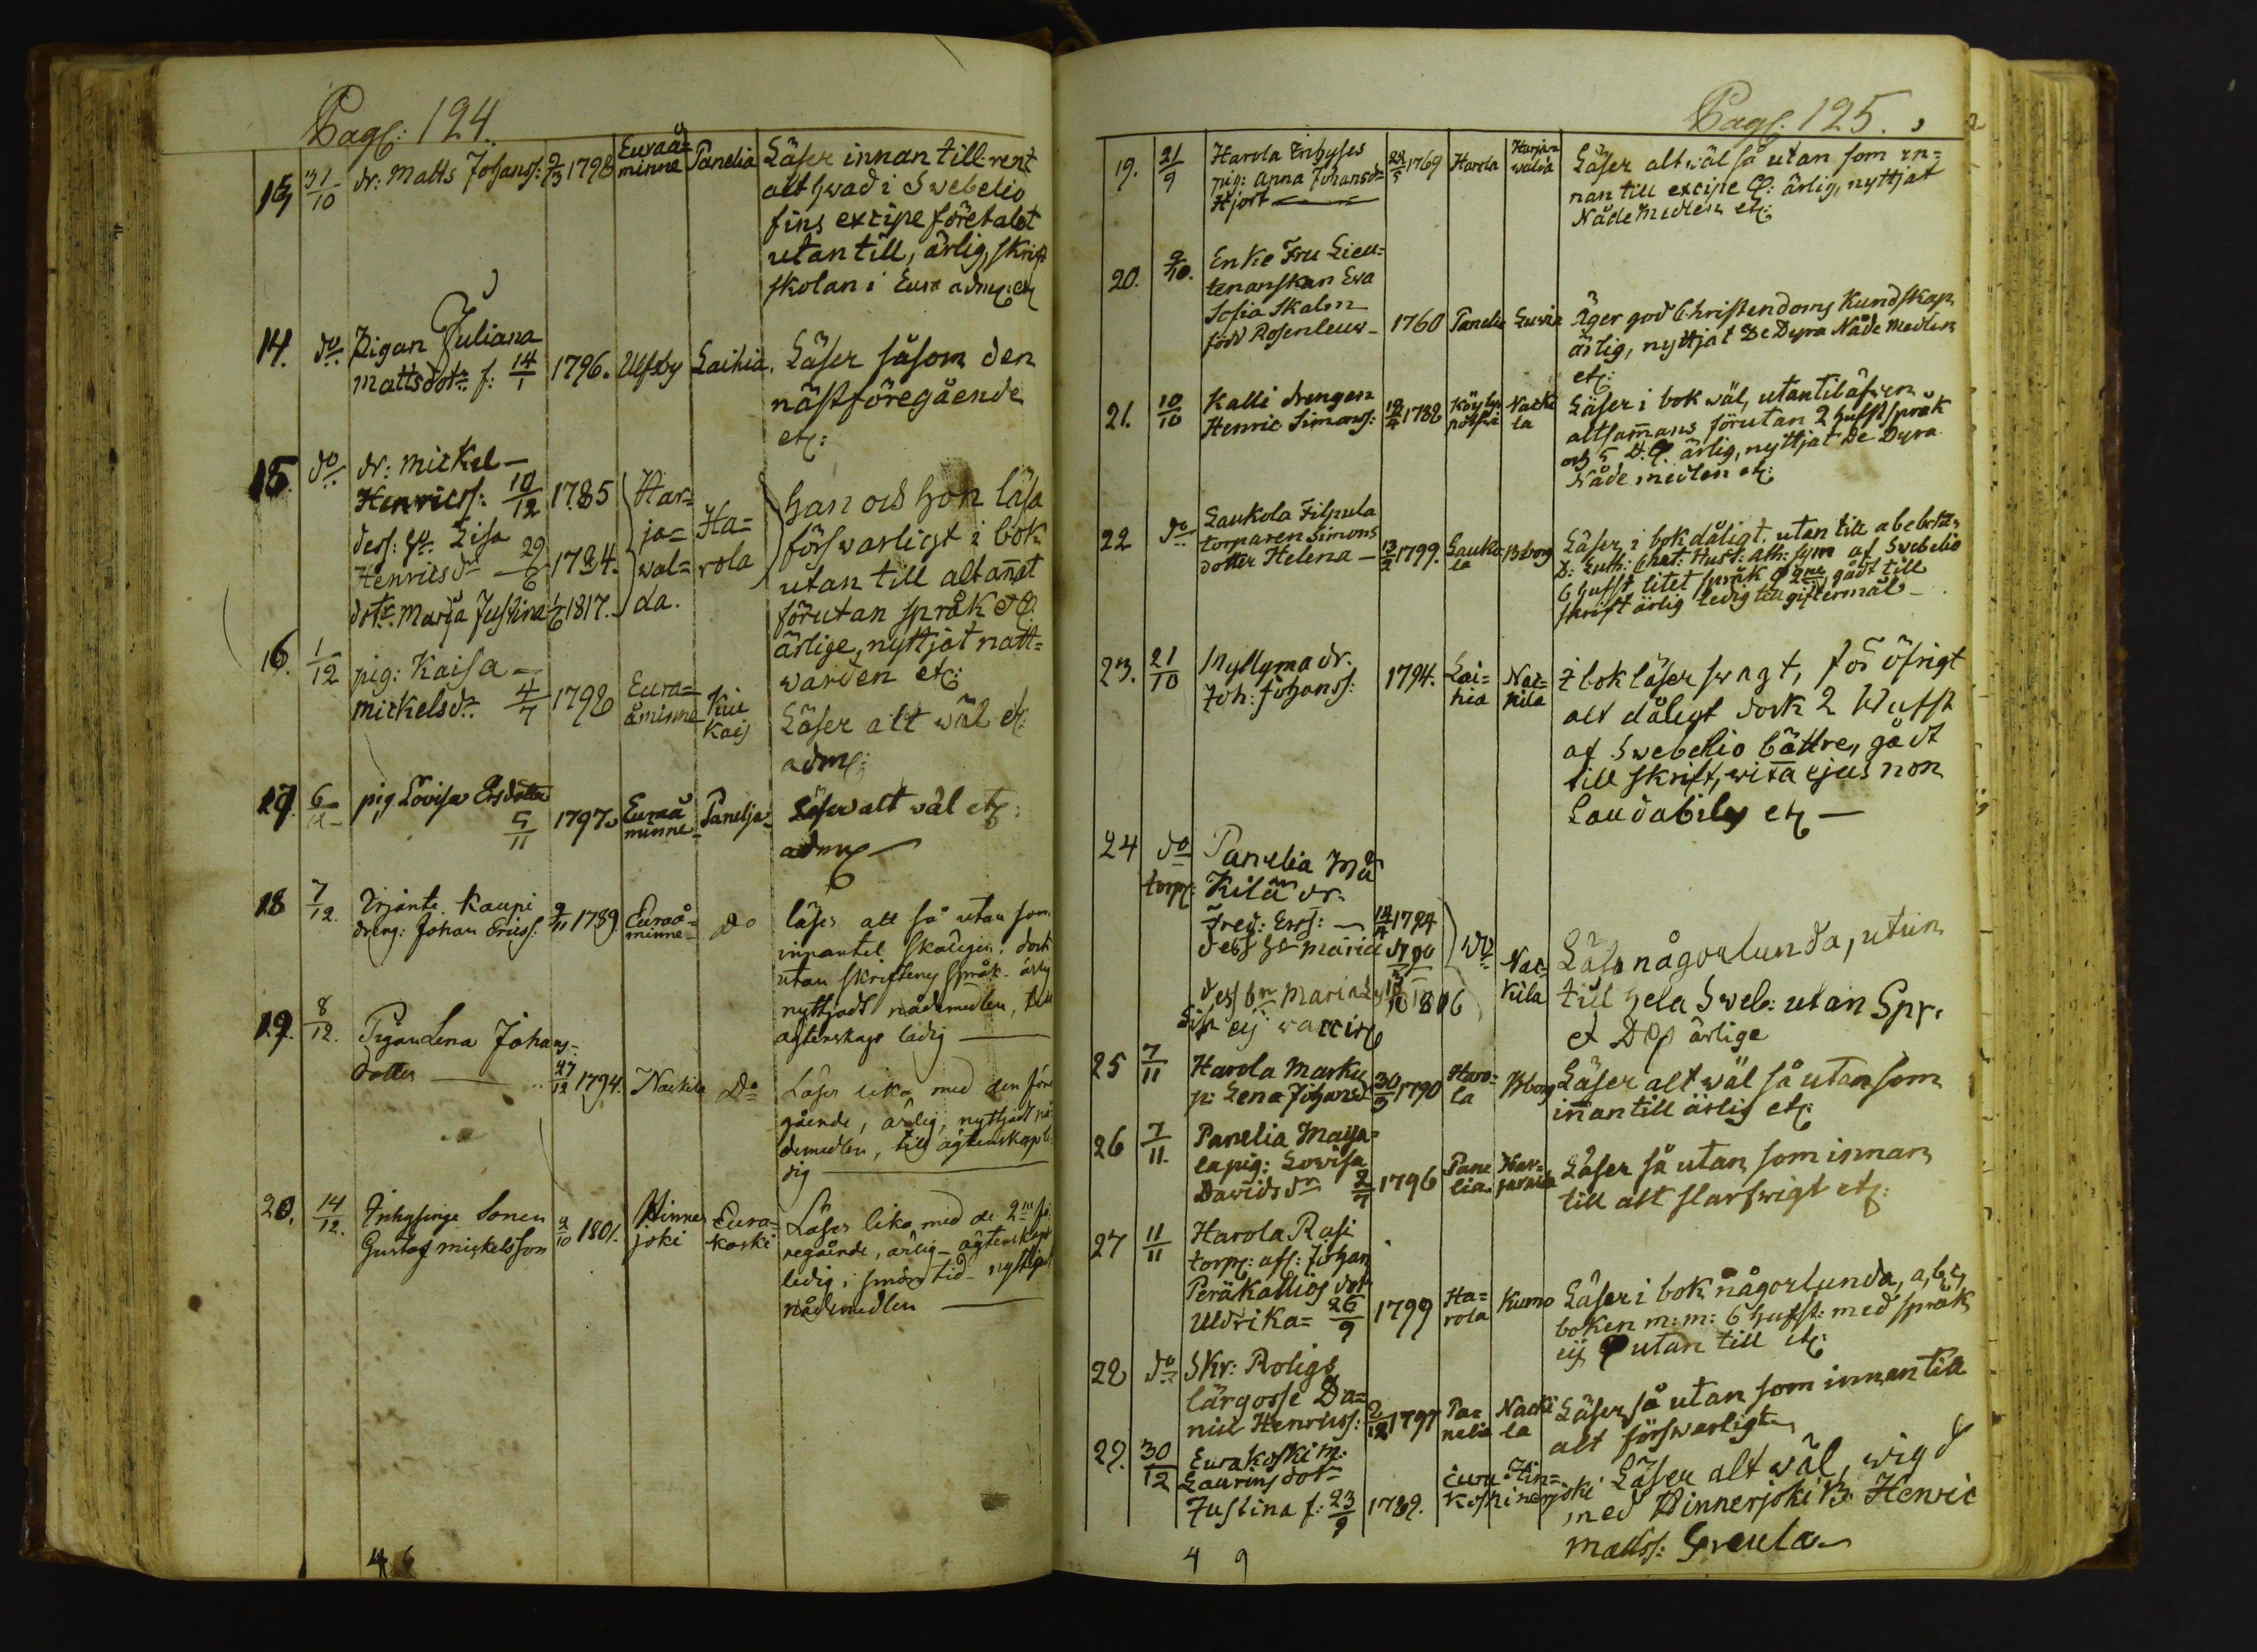 Pag: 124.
13, 31/10 dr: Matts Johanss: 9/3 1798 Euraå= minne Panelia Läser innan till rent
alt hwad i Swebelio
fins excipe företalet
utan till, ärlig, skrift
skolan i Eura adm: etc
14. do Pigan Juliana
Mattsdotr f: 14/1 1796. Ulfsby Laihia. Läser såsom den
nästföregående
etc:
15. do dr: Mickel —
Henricss: 10/12 1785 Har= Ha= han och hon läsa
dess: h: Lisa ja= rola försvarligt i bok
Henricsdr 29/6 1784. wal= utan till alt annat
dotr: Maria Justina 1/6 1817. da. förutan språk
ärlige, nyttjat natt=
warden etc:
16. 1/12 pig: Kaisa —
Mickelsdr 4/7 1798 Eura= åminne Kiu Kais Läser alt wäl etc:
adm:
17. 6 pig Lovisa Ersdotter
5/11 1797. Euraå minne Panelja Läser alt wäl etc:
adm
18 7/12. Irjante Kaupi
dreng: Johan Ericss: 9/11 1789 Euraå= minne do läser alt så utan som
innantil skäligen, dock
utan skriftens språk ärlig
nyttjadt nådemedlen, till
ägtenskaps ledig —
19. 8/12. Pigan Lena Johans=
dotter — 27/12 1794. Nackila Do Läser lika med den före
gående, ärlig, nyttjadt nå=
demedlen, till ägtenskap le=
dig
20. 14/12. Inhysinge Sonen
Gustaf Mickelsson 9/10 1801. Hinner joki Eura= koski Läser lika med de 2ne fö=
regående, ärlig ägtenskaps
ledig i sinom tid nyttjat
nådemedlen
46
Pag: 125.
19. 21/9 Harola Inhyses
pig: Anna Johansdr
Hjort 28/5 1769 Harola Harjan walda Läser alt wäl så utan som in=
nan till excipe: ärlig, nyttjat
Nådemedlen etc:
20. 9/10. Enke Fru Lieu=
tenanskan Ewa
Sofia Skalm
född Rosenleuw — 1760 Panelia Luvia Äger god Christendoms Kundskap
ärlig, nyttjat De Dyra Nåde medlen
etc:
21. 10/10 Kalli drengen
Henric Simonss: 12/4 1788 Köyly Nacki la Läser i bok wäl, utantil äfwen
altsammans förutan 2 Hufst språk
och 5 D. ärlig, nyttjat De Dyra
Nåde medlen etc:
22 do Laukola Filpula
torparen Simons
dotter Helena — 13/2 1799. Lauko la Bborg Läser i bok dåligt. utan till abeboken
D: Luth: Chat: Hust: ath: sym af Swebelio
6 hufst litet språk 2ne gådt till
skrift ärlig ledig till giftermål —
23. 21/10 Myllyma dr.
Joh: Johanss: 1794. Lai= hia Nac= kila i bok läser swagt, för öfrigt
alt dåligt dock 2 Hufst
af Swebelio bättre, gådt
till skrift, wita ejus non
Laudabilis etc —
24 do Panelia Mä
torp: Kilä dr.
Fred: Erss: — 14/4 1794
dess h: Maria do Nac= kila Läsa någorlunda, utan
till hela Sweb: utan Spr.
1806 et D ärlige
ej waccin
25 7/11 Harola Marku
p: Lena Johansd 30/3 1790 Haro= la Bborg Läser alt wäl så utan som
innan till ärlig etc:
26 7/11. Panelia Maija=
la pig: Lovisa
Davidsdr 2/7 1796 Pane lia. Läser så utan som innan
till alt slarfwigt etc:
27 11/11 Harola Rasi
torp: afl: Johan
Peräkallios dotr
Uldrika= 26/9 1799 Ha= rola Kumo Läser i bok någorlunda, a, b, c,
boken m: m: 6 hufst: med språk
ej utan till etc:
28 do Skr: Roligs
lärgosse Da=
niel Henricss: 2/12 1797 Pa= nelia Nacki la Läser så utan som innan till
alt försvarligt
29. 30/12 Eurakoski m:
Laurins dotr
Justina f: 23/9 1789. Eura koski Hin= nerjoki Läser alt wäl, wigd
med Hinnerjoki B: Henric
Matss: Greula
49